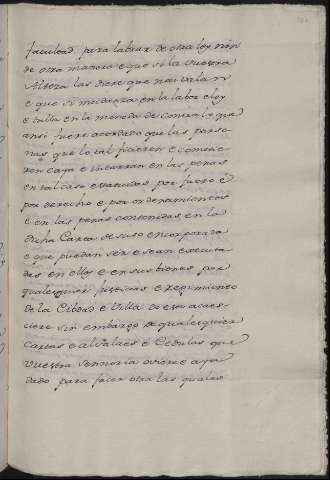 facultad para labrar de otra ley nin
de otra manera e que si la vuestra
Alteza las diere que non valan
e que si mudanza en la labor e ley
e talla en la moneda de contra lo que
ansi fuere acordado que las perso-
nas que lo tal ficieren e consin-
tieren caya e incurran en las penas
en tal caso establecidas por fuero e
por derecho e por ordenamientos
e en las penas contenidas en la
dicha Carta de suso encorporada
e que puedan ser e sean executa-
das en ellos e en sus bienes por
qualesquier justicias e regimiento
de la Cibdad e Villa do esto acaes-
ciere sin embargo de qualesquier
Cartas e alvalaes e Cedulas que
vuestra Señoria oviere e ya
dado para facer otra las quales